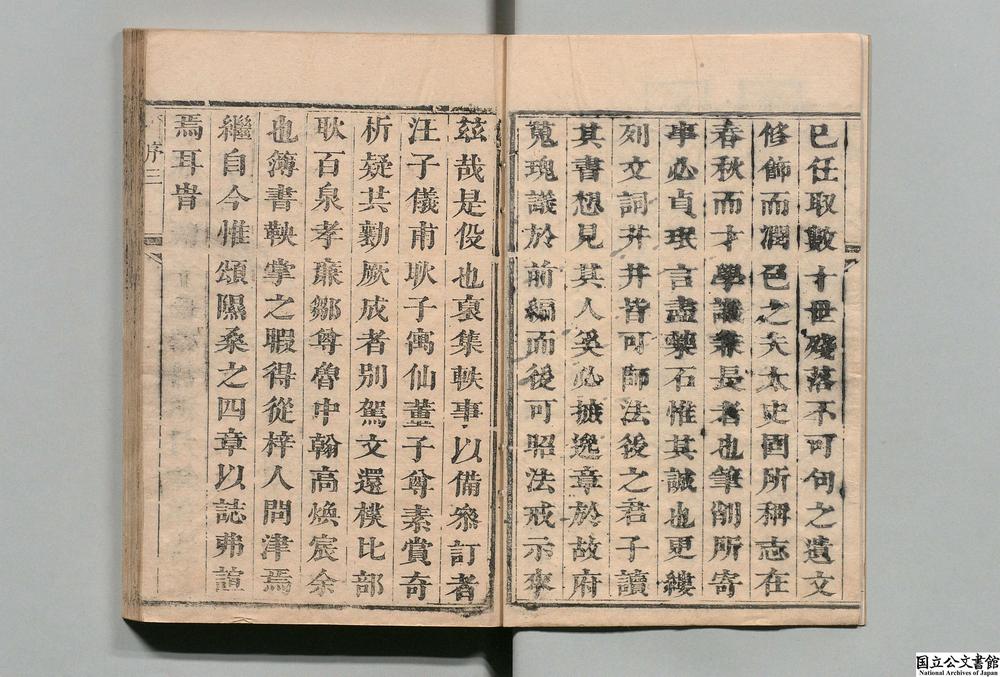 已任取數十世殘落不可句之遺文
修飾而潤色之夫太史固所稱志在
春秋而才學識兼長者也筆削所寄
事必貞珉言盡藥石惟其誠也更縷
列文詞井井皆可師法後之君子讀
其書想見其人奚必摭逸章於故府
蒐瑰議於前編而後可昭法戒示來
茲哉是役也裒集軼事以備叅訂者
汪子儀甫耿子寓仙董子尊素賞奇
析疑共勷厥成者別駕文還樸比部
耿百泉孝廉鄒尊魯中翰高煥宸余
也簿書鞅掌之暇得從梓人問津焉
繼自今惟頌隰桑之四章以誌弗諠
焉耳旹
序 三
国立公文書館
National Archives of Japan